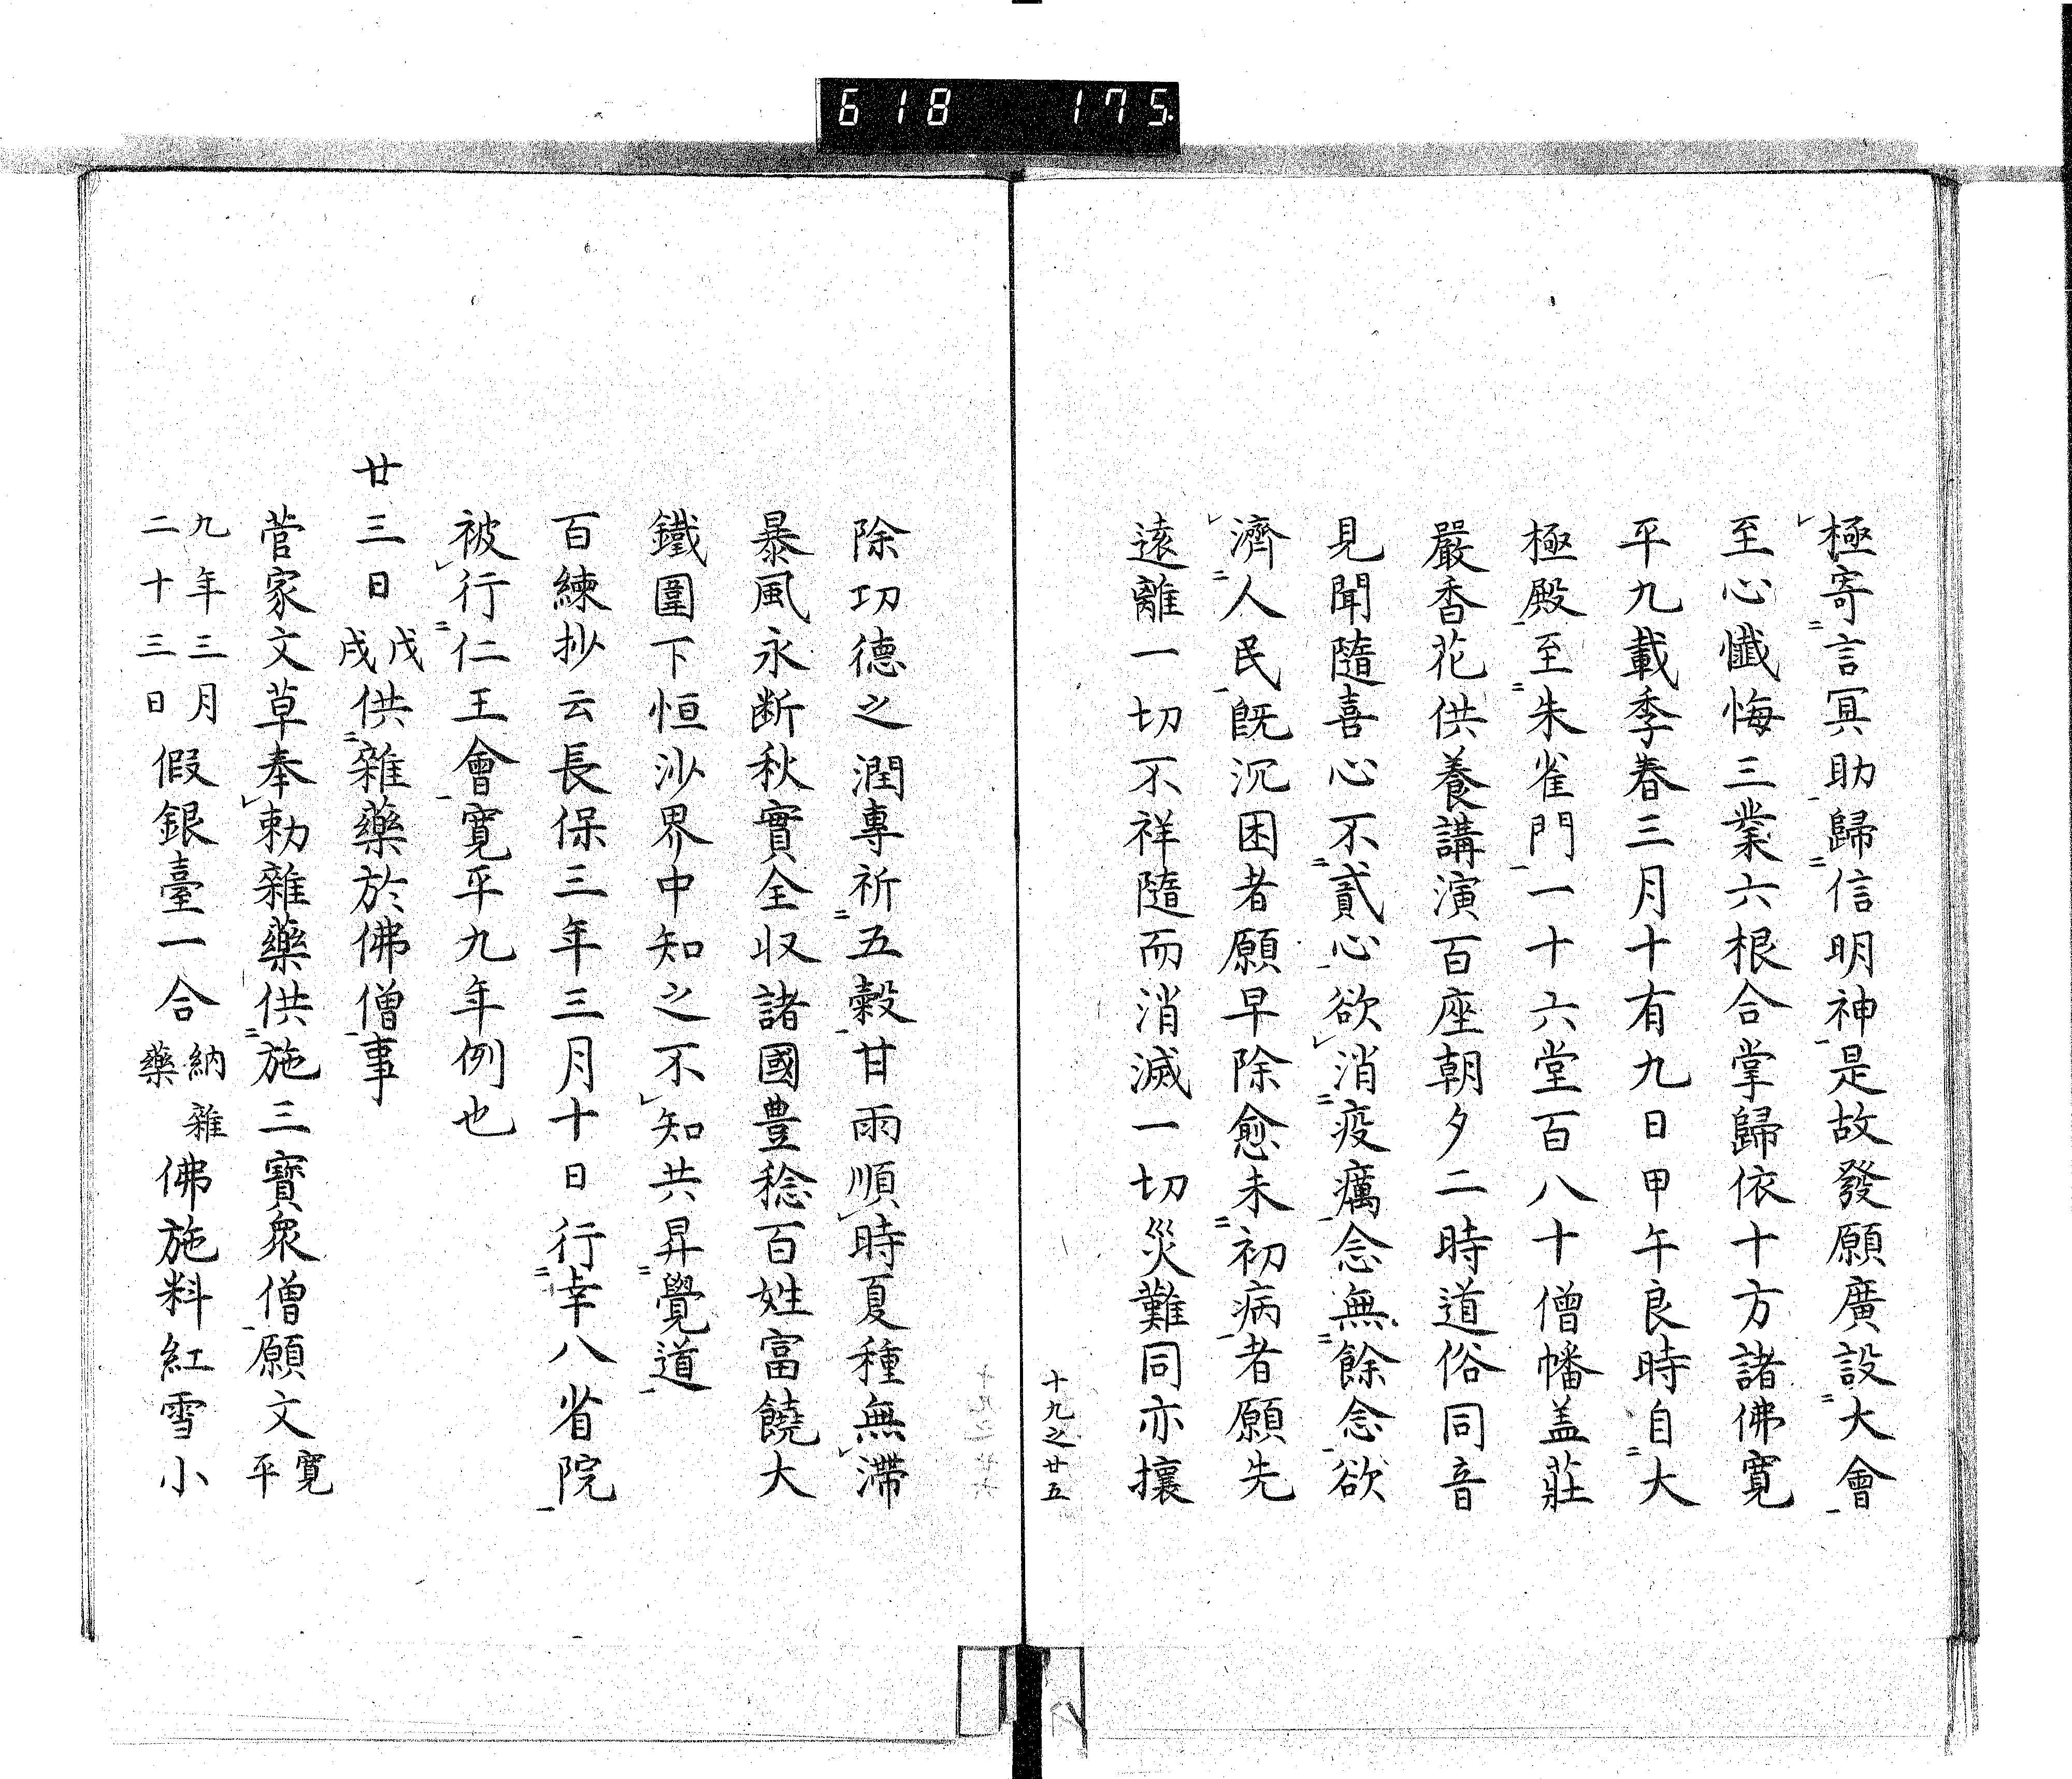 618 175.
極寄言冥助歸信明神是故發願廣設大會
至心懺悔三業六根合掌歸依十方諸佛寛
平九載季春三月十有九日甲午良時自大
極殿至朱雀門一十六堂百八十僧幡盖莊
嚴香花供養講演百座朝夕二時道俗同音
見聞隨喜心不貳心欲消疫癘念無餘念欲
濟人民既沉困者願早除愈未初病者願先
遠離一切不祥隨而消滅一切災難同亦攘
十九之廿五
除功德之潤專祈五穀甘雨順時夏種無滯
暴風永断秋實全収諸國豊稔百姓富饒大
鐵圍下恒沙界中知之不知共昇覺道
百練抄云長保三年三月十日行幸八省院
被行仁王會寛平九年例也
廿三日戊戌供雜藥於佛僧事
菅家文草奉勅雜藥供施三寳衆僧願文寛平
九年三月二十三日假銀臺一合納雜藥佛施料紅雪小